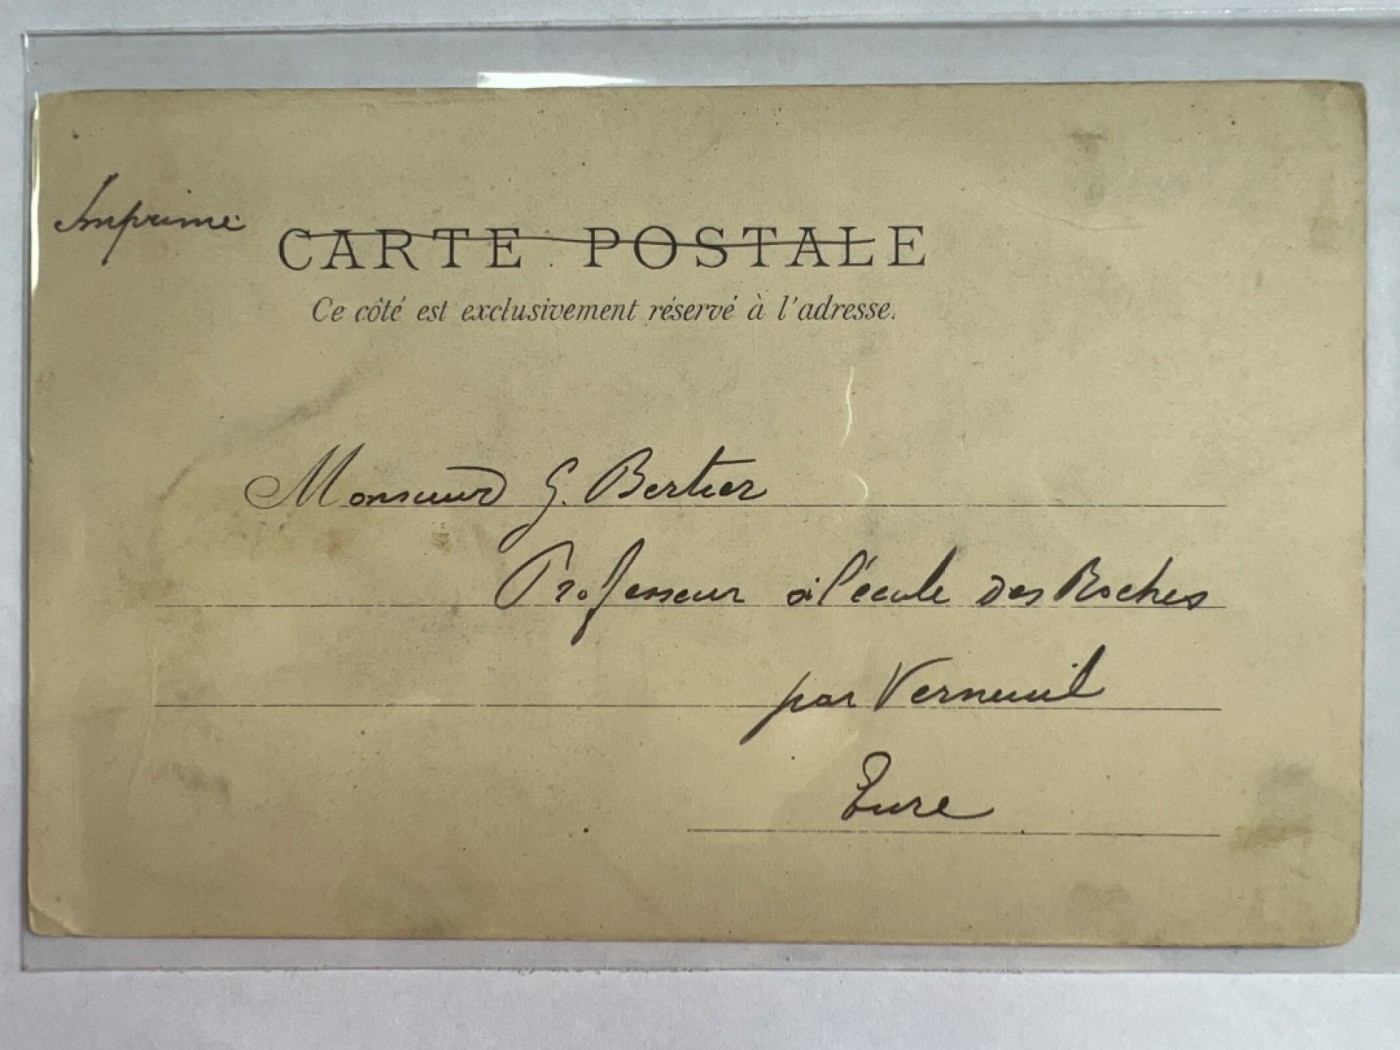 Imprimé
CARTE POSTALE
Ce côté est exclusivement réservé à l'adresse.
Monsieur G. Bertier
Professeur à l'école des Roches
par Verneuil
Eure